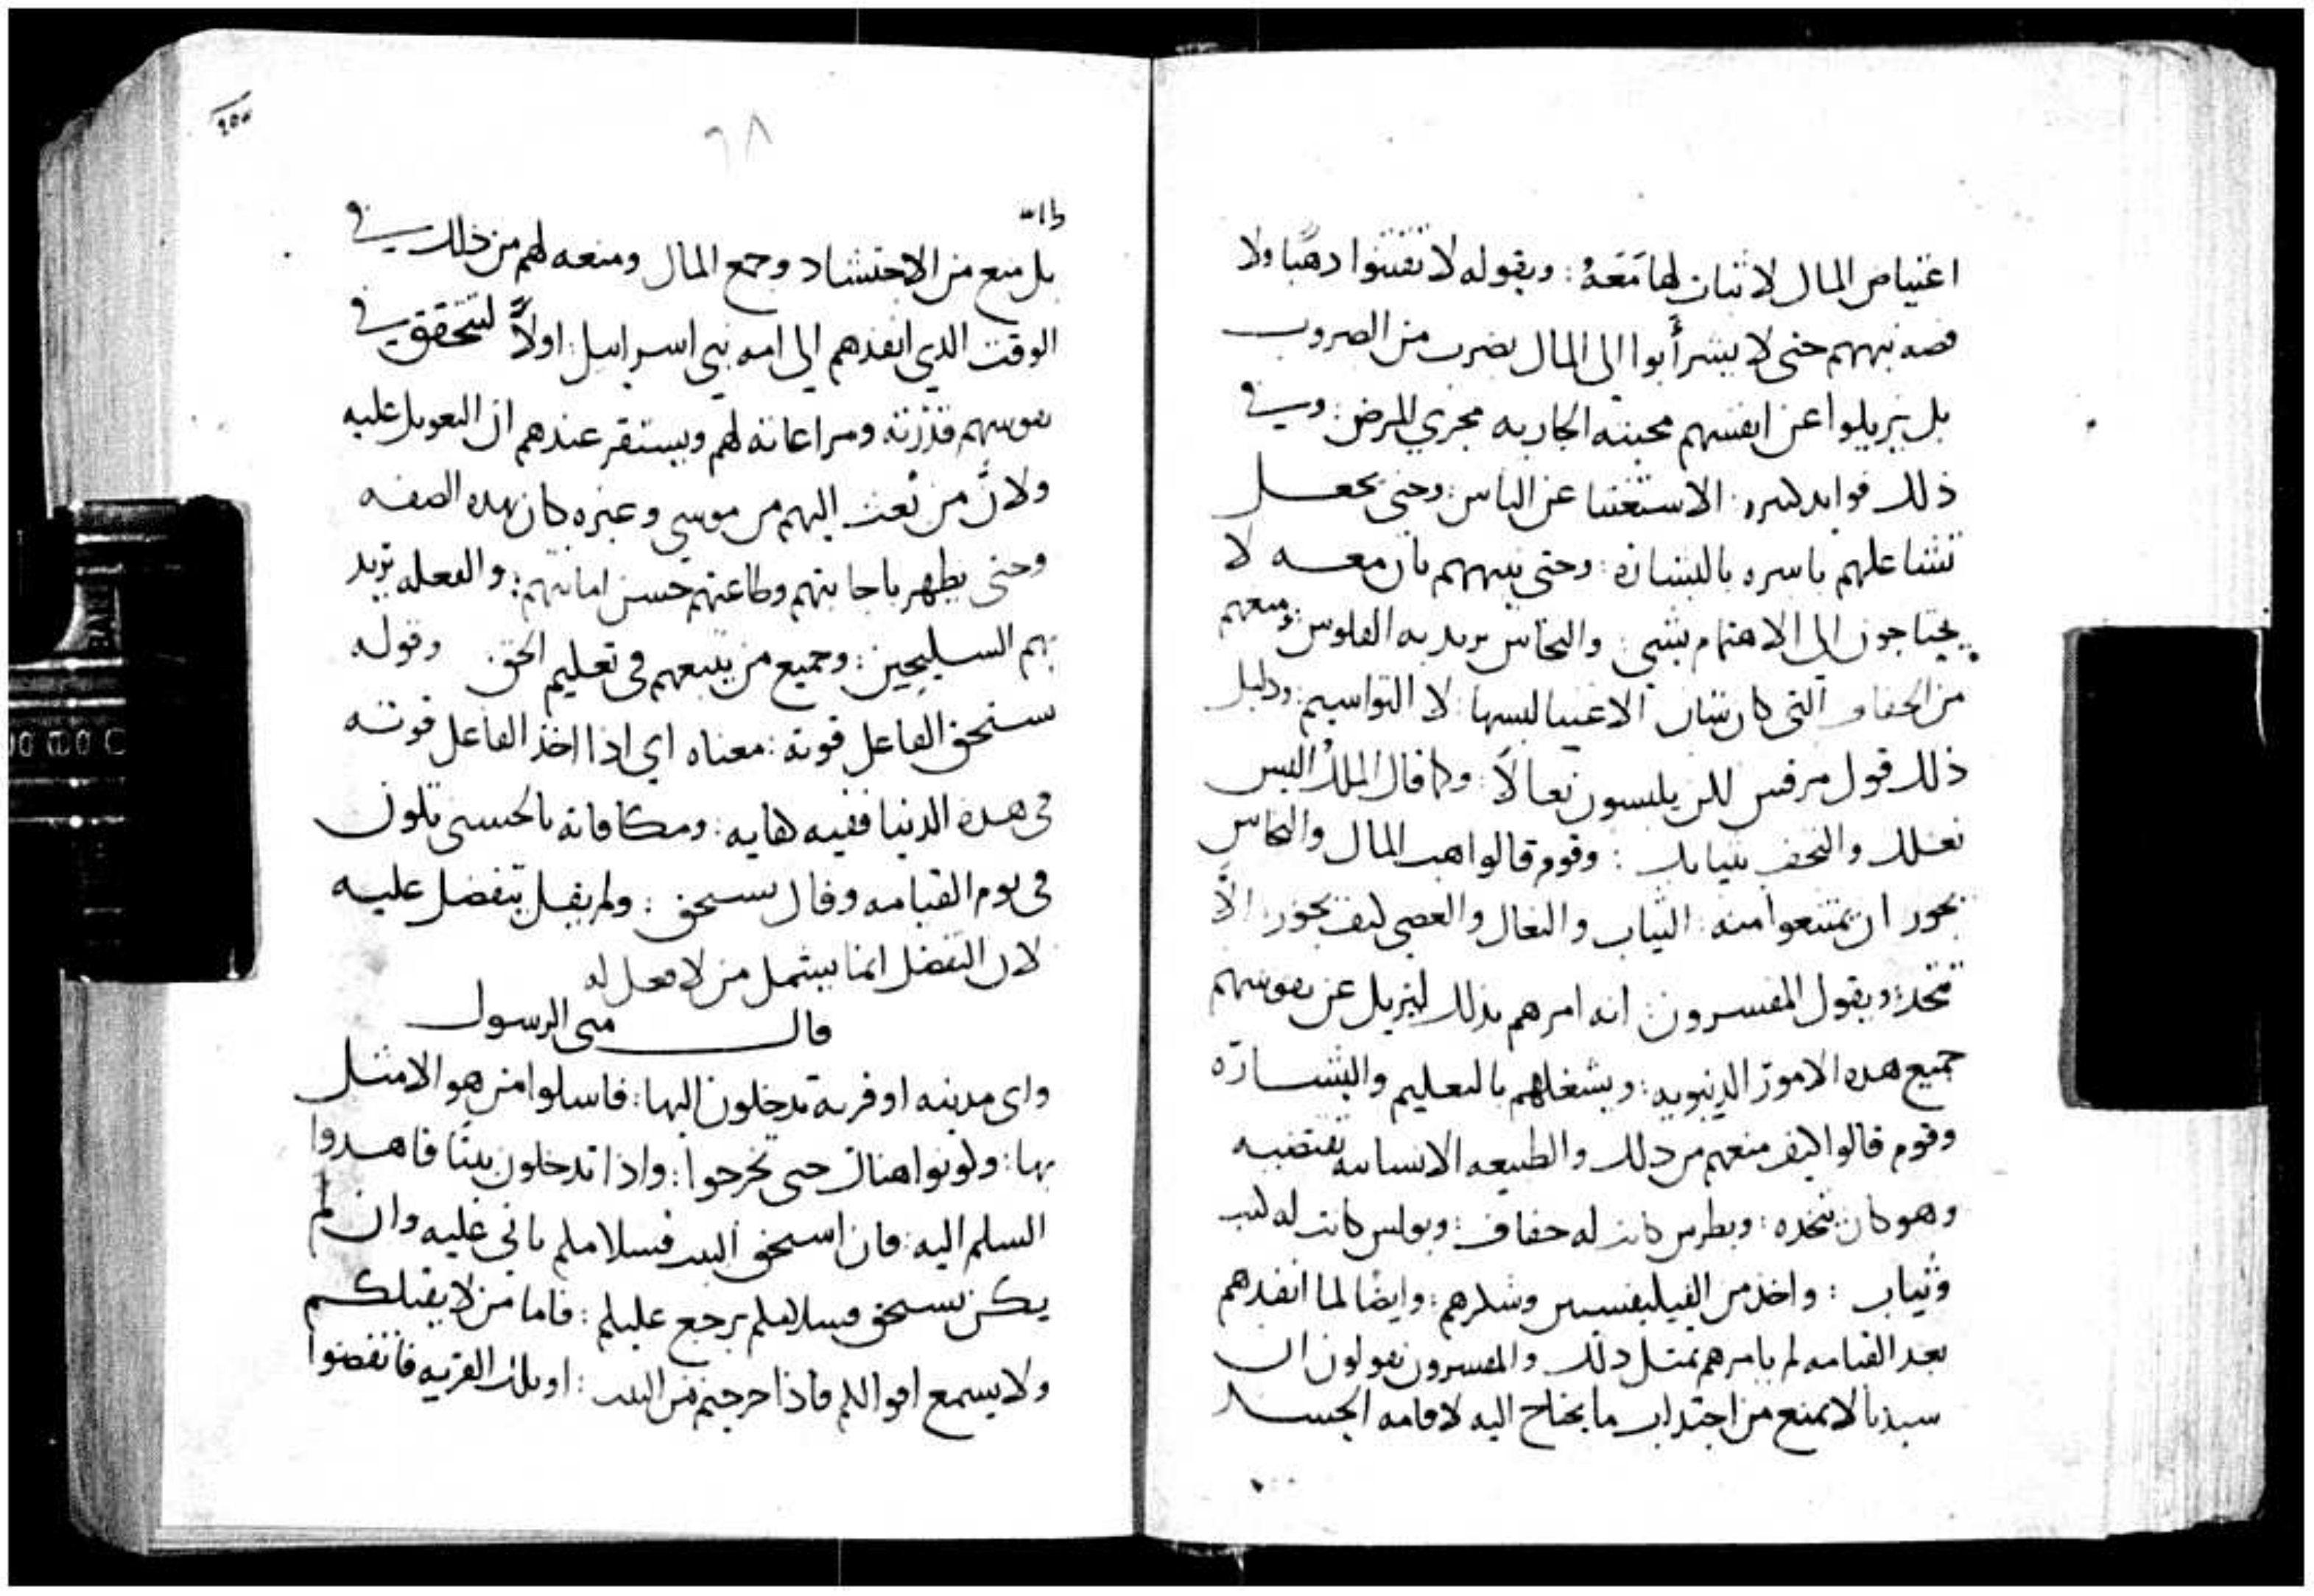 اعتياض المال لا ثبات لها مَعَهُ : وبقوله لا تقتنوا ذهبًا ولا
فضه نبههم حتى لا يشرأبوا الى المال بضرب من الضروب
بل يزيلوا عن انفسهم محبته الجاريه مجري المرض : وفي
ذلك فوايد الاستغنا عن الناس : وحتى يجعل
تشاغلهم باسره بالبشاره : وحتى ينبههم بان معه لا
يحتاجون الى الاهتمام بشي : والنحاس يريد به الفلوس : ومنعهم
من الخفاف التي كان شان الاغنيا لبسها : لا التواسيم : ودليل
ذلك قول مرقس لكن يلبسون نعالاً : وكما قال الملك البس
نعلك والتحف بثيابك : وقوم قالوا هب المال والنحاس
يجوز ان يمتنعوا منه : الثياب والنعال والعصي كيف يجوز : الاّ
تتخذ : ويقول المفسرون : انه امرهم بذلك ليزيل عن نفوسهم
جميع هذه الامور الدنيويه : ويشغلهم بالتعليم والبشاره
وقوم قالوا كيف منعهم من ذلك والطبيعه الانسانيه تقتضيه
وهو كان يتخذه : وبطرس كانت له خفاف : وبولس كانت له كتب
وثياب : واخذ من الفيليفسيين وشكرهم : وايضًا لما انفذهم
بعد القيامه لم يامرهم بمثل ذلك والمفسرون يقولون ان
سيدنا لا يمنع من اجتذاب ما يحتاج اليه لاقامه الجسد
٦٨
بل منع من الاحتشاد وجمع المال ومنعه لهم من ذلك في
الوقت الذي انفذهم الى امه بني اسراييل : اولاً لتتحقق في
نفوسهم قدرته ومراعاته لهم ويستقر عندهم ان التعويل عليه
ولانَّ من بُعث اليهم من موسي وغيره كان بهذه الصفه
وحتى يظهر باجابتهم وطاعتهم حسن امانتهم : والفعله يريد
بهم السليحين : وجميع من يتبعهم في تعليم الحق وقوله
يستحق الفاعل قوته : معناه اي اذا اخذ الفاعل قوته
في هذه الدنيا ففيه كفايه : ومكافاته بالحسنى تكون
في يوم القيامه وقال يستحق : ولم يقل يتفضل عليه
لان التفضل انما يشمل من لا فعل له
قال متى الرسول
واى مدينه او قريه تدخلون اليها : فاسلوا من هو الامثل
بها : وكونوا هناك حتى تخرجوا : واذا تدخلون بيتًا فاهدوا
السلم اليه : فان استحق البيت فسلامكم ياتي عليه وان لم
يكن يستحق فسلامكم يرجع عليكم : فاما من لا يقبلكم
ولا يسمع اقوالكم فاذا خرجتم من البيت : او تلك القريه فانفضوا